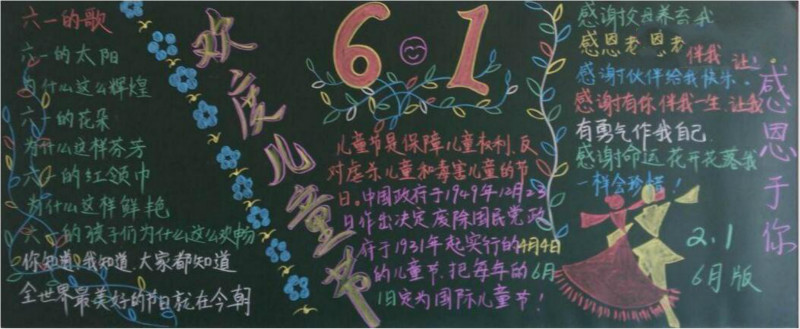 六一的歌
六一的太阳
为什么这么辉煌
六一的花朵
为什么这样芬芳
六一的红领巾
为什么这样鲜艳
六一的孩子们为什么这么欢畅
你知道,我知道,大家都知道
全世界最美好的节日就在今朝
欢度儿童节
6·1
儿童节是保障儿童权利、反
对虐杀儿童和毒害儿童的节
日。中国政府于1949年12月23
日作出决定废除国民党政
府于1931年起实行的4月4日
的儿童节,把每年的6月
1日定为国际儿童节!
感谢父母养育我
感恩老 恩老
感谢伙伴给我快乐
感谢有你 伴我一生 让我
伴我 让
有勇气作我自己
感谢命运 花开花落我
一样会珍惜!
感恩于你
2.1
6月版